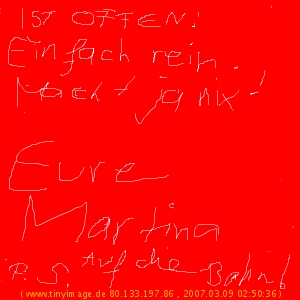 IST OFFEN!
Einfach rein.
Macht ja nix!
Eure
Martina
P.S. Auf die Bahn!
(www.tinyimage.de 80.133.197.86 , 2007.03.09 02:50:36)